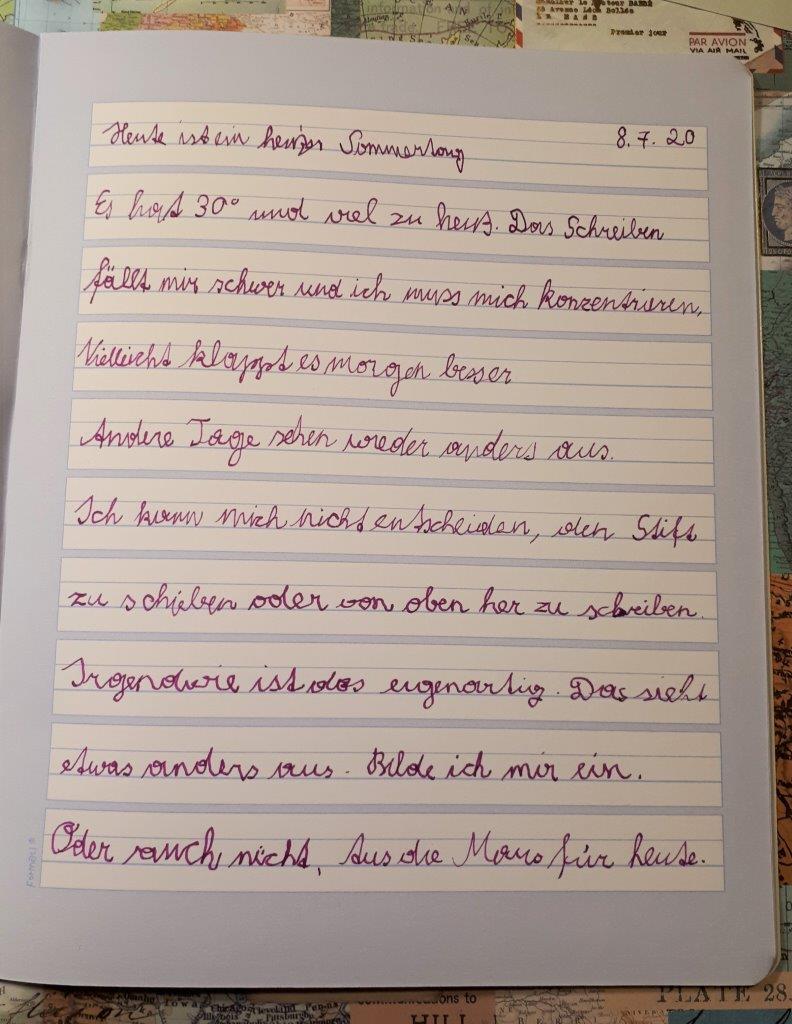 information
Premier jour
PAR AVION
VIA AIR MAIL
Heute ist ein heißer Sommertag 8.7.20
Es hat 30° und viel zu heiß. Das Schreiben
fällt mir schwer und ich muss mich konzentrieren,
Vielleicht klappt es morgen besser
Andere Tage sehen wieder anders aus.
Ich kann mich nicht entscheiden, den Stift
zu schieben oder von oben her zu schreiben.
Irgendwie ist das eigenartig. Das sieht
etwas anders aus. Bilde ich mir ein.
Oder auch nicht. Aus die Maus für heute.
Formati
Iowa
Cleveland
communications to
HILL
PLATE 28